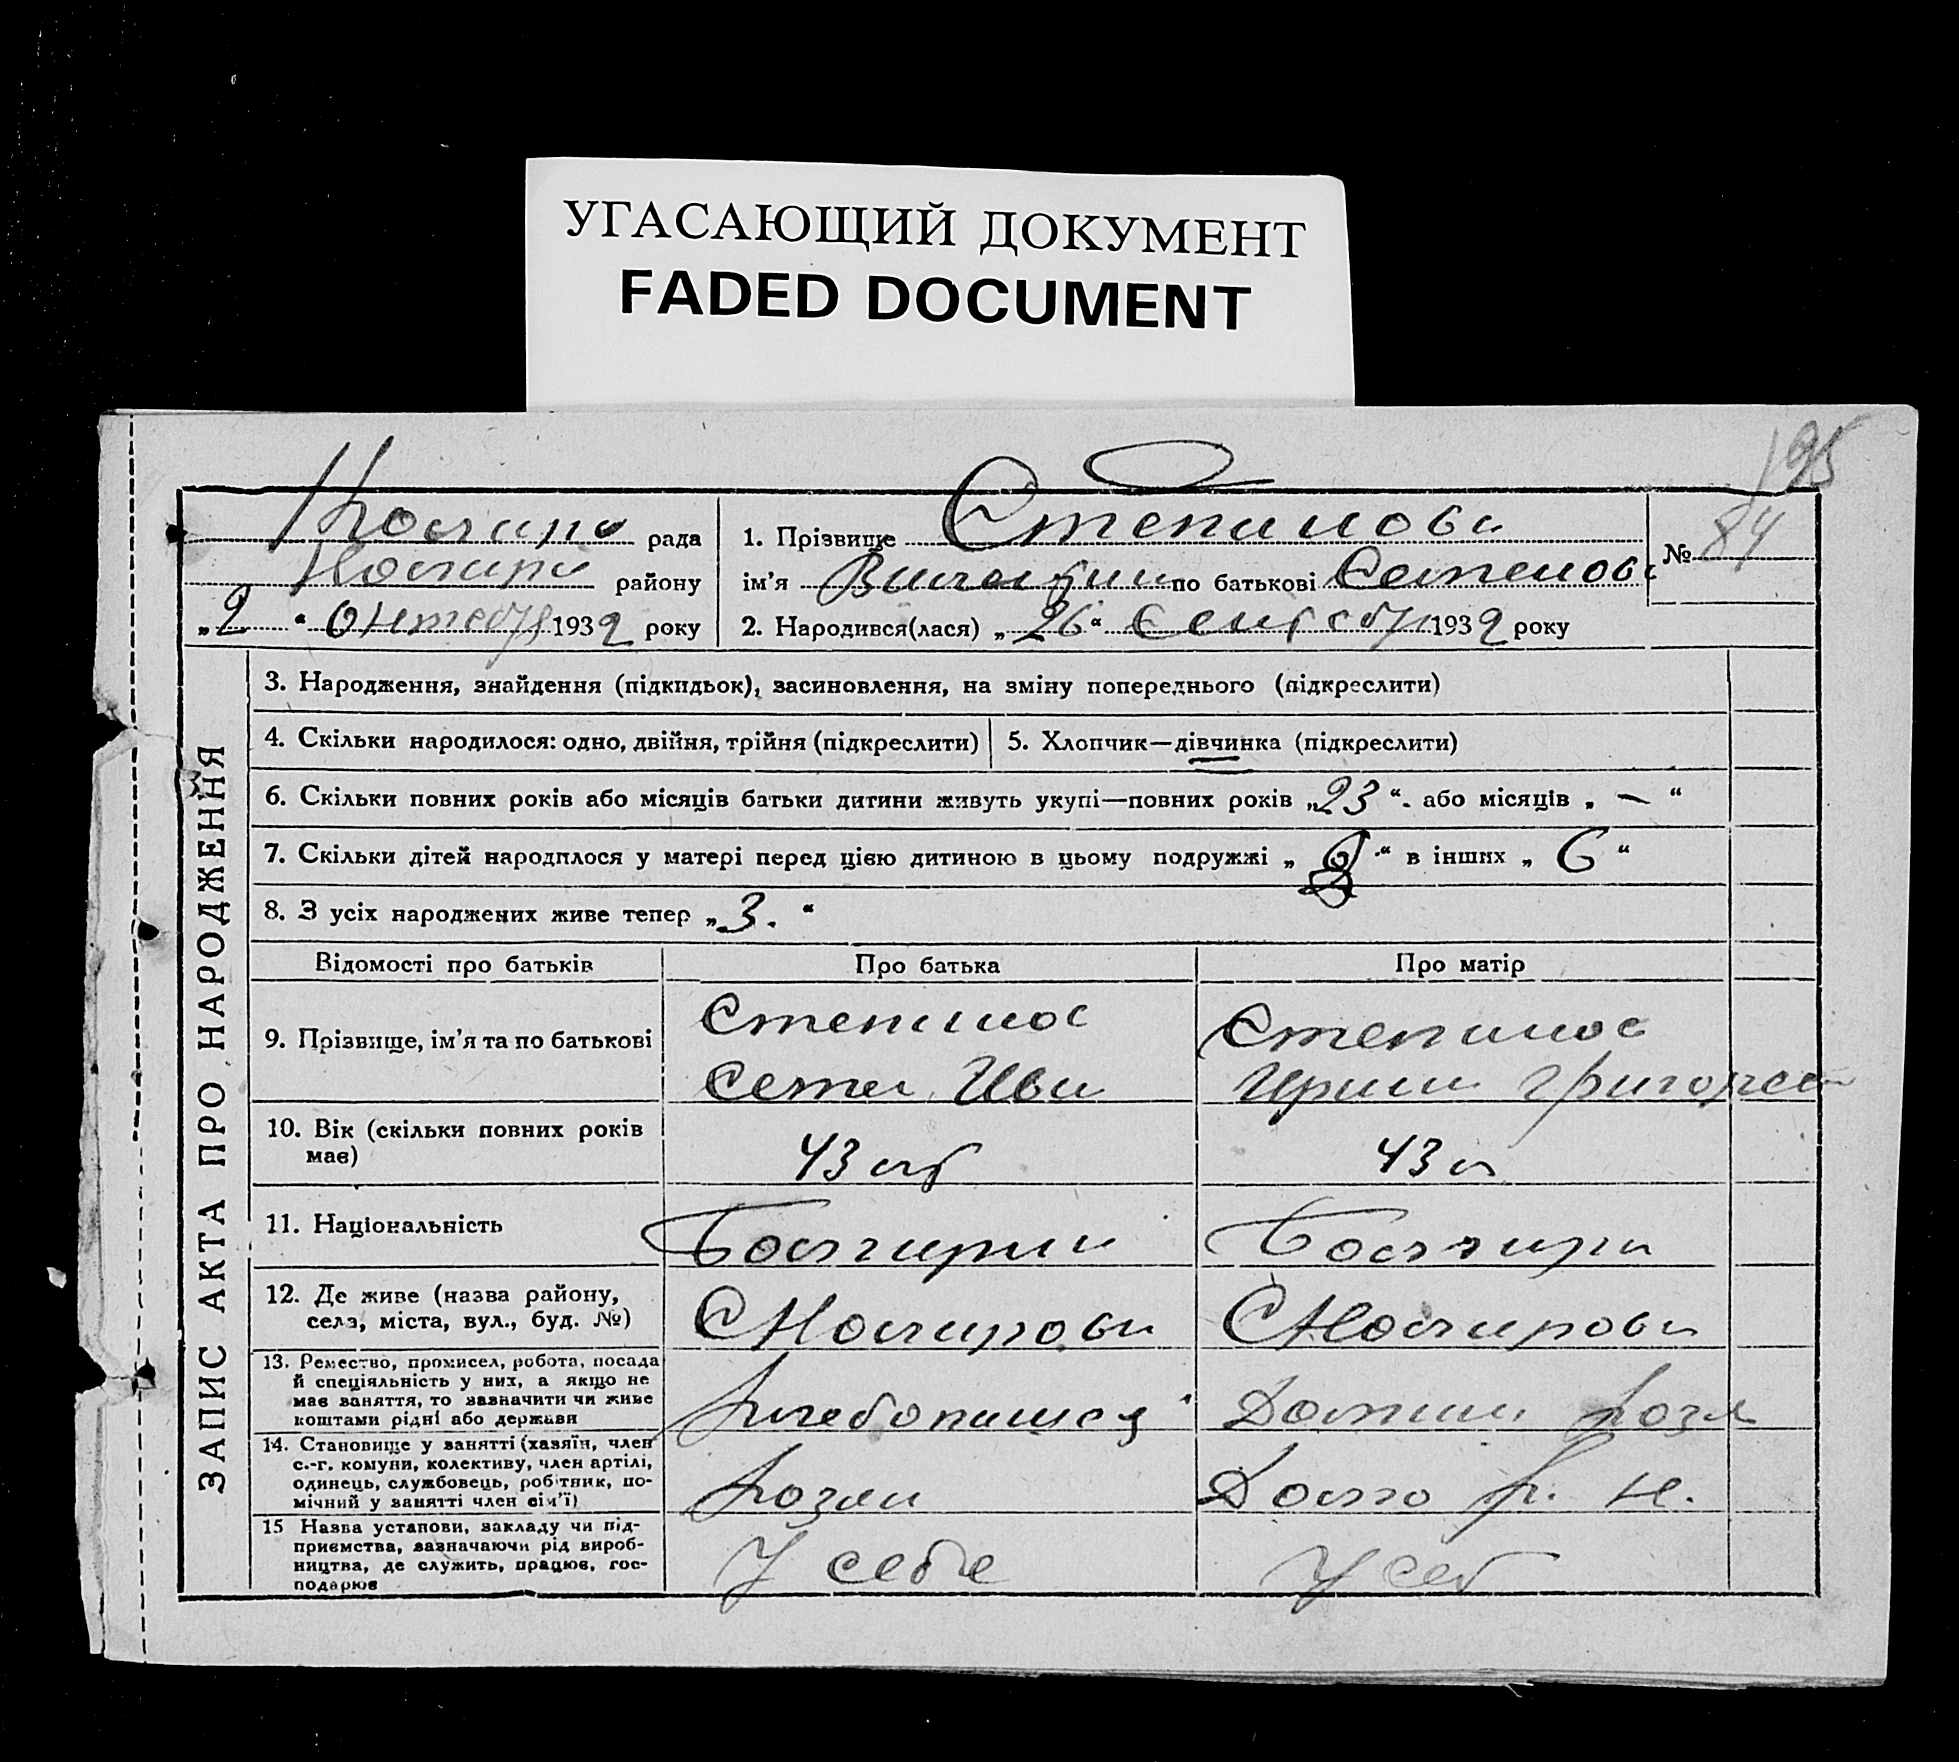 УГАСАЮЩИЙ ДОКУМЕНТ
FADED DOCUMENT
195
рада
району
„2“ Октебря 1932 року
1. Прізвище Степанова
ім’я по батькові Семенова
№ 84
2. Народився(лася) „26“ 1932 року
ЗАПИС АКТА ПРО НАРОДЖЕННЯ
3. Народження, знайдення (підкидьок), засиновлення, на зміну попереднього (підкреслити)
4. Скільки народилося: одно, двійня, трійня (підкреслити)
5. Хлопчик—дівчинка (підкреслити)
6. Скільки повних років або місяців батьки дитини живуть укупі—повних років „23“. або місяців „ — “
7. Скільки дітей народилося у матері перед цією дитиною в цьому подружжі „ “ в інших „ 6 “
8. З усіх народжених живе тепер „3. “
Відомості про батьків
Про батька
Про матір
9. Прізвище, ім’я та по батькові
Степанов
Семен Ива
Степанов
Ирина Григорев
10. Вік (скільки повних років
має)
43
43 л
11. Національність
Болгарин
Болгарка
12. Де живе (назва району,
села, міста, вул., буд. №)
13. Ремество, промисел, робота, посада
й спеціяльність у них, а якщо не
має заняття, то зазначити чи живе
коштами рідні або держави
Хлебопашец
Домашн. хозя
14. Становище у занятті (хазяїн, член
с.-г. комуни, колективу, член артілі,
одинець, службовець, робітник, по-
мічний у занятті член сім’ї)
Хозяин
15 Назва установи, закладу чи під-
приємства, зазначаючи рід вироб-
ництва, де служить, працює, гос-
подарює
У себе
У себ